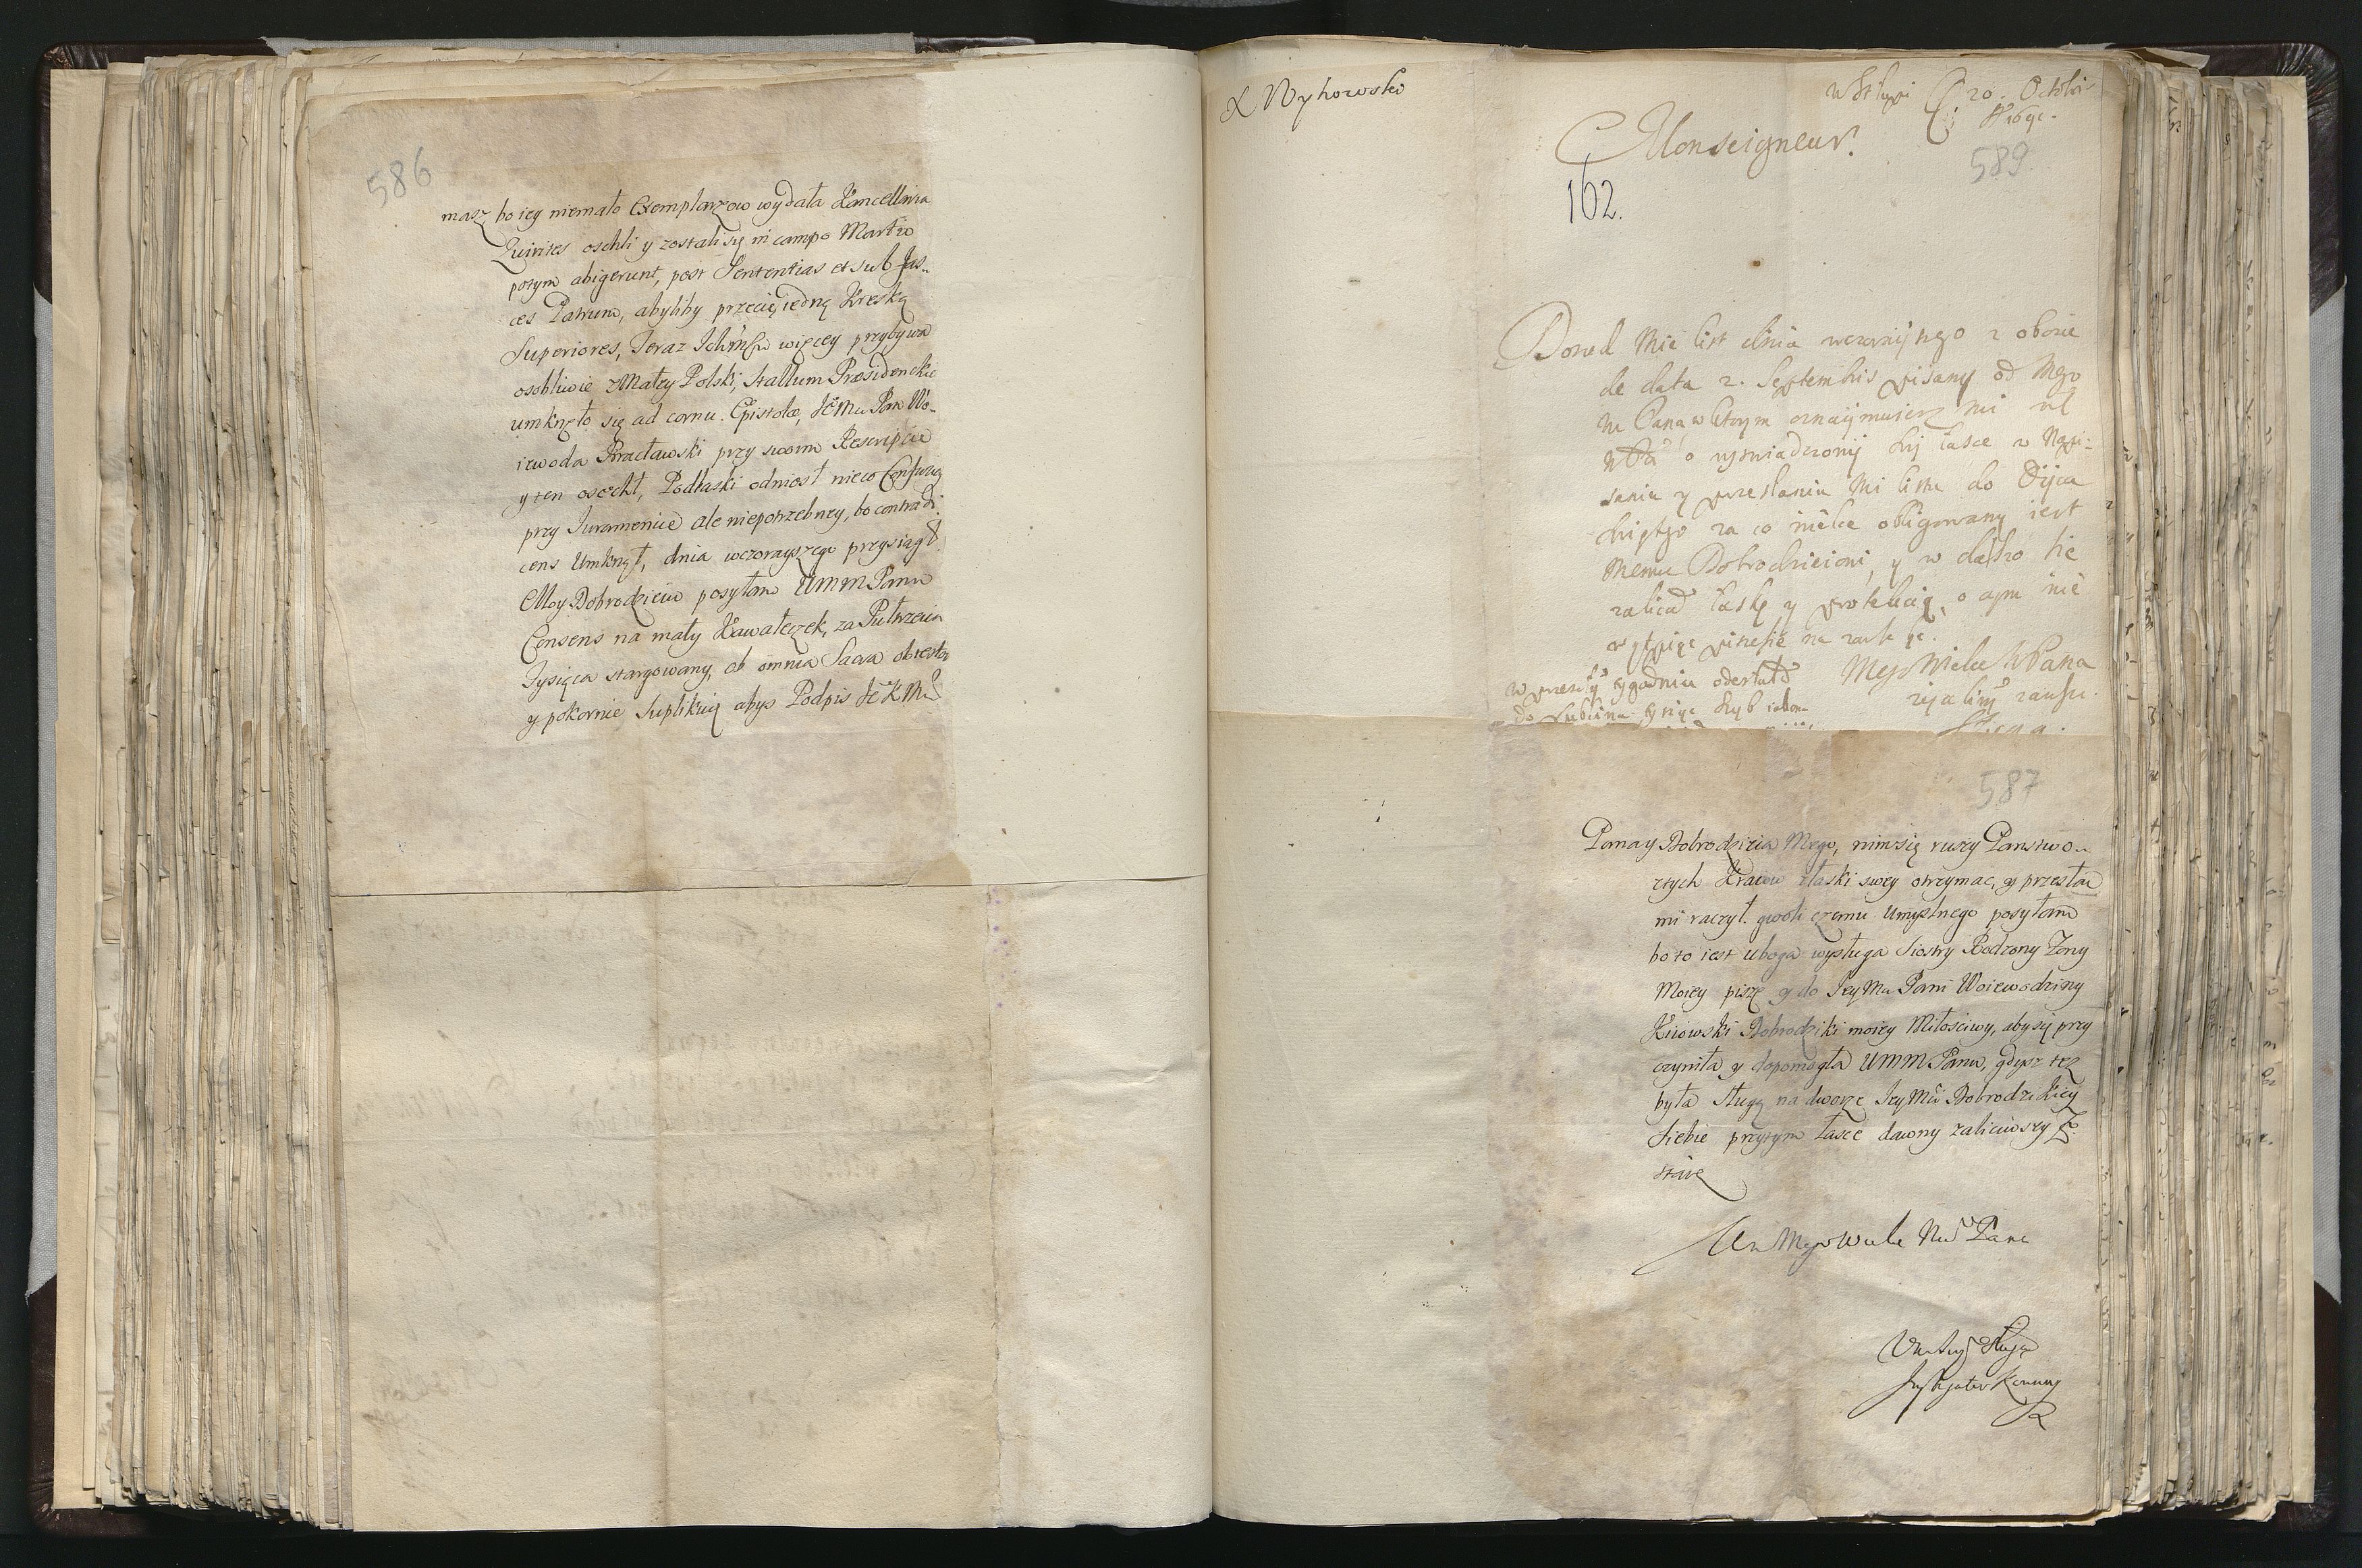 586
masz bo iey niemało Exemplarzow wydała Kancellaria
Quirites oschli y zostali się in campo Martio
potym abigerunt, post Sententias et sub Fas-
ces Patrum, abyliby przecię iedną Kreską
Superiores, Teraz Ichmśw więcey przybywa
osobliwie z Małey Polski, Stallum Præsidenckie
umknęło się ad cornu Epistolæ, JeMu Pan Wo-
iewoda Bracławski przy swoim Rescripcie
y ten osechł, Podlaski odniosł nieco Confuzij
przy Iuramencie ale niepotrzebney, bo contradi-
cens Umknął, dnia wczorayszego przysiągł
Moy Dobrodzieiu posyłam UMM Panu
Consens na mały Kawałeczek, za Pułtrzecia
Tysięca stargowany, ob omnia Sacra obtestor
y pokornie Suplikuię abys Podpis JeKMci
X Wyhowski
20. Octobris
Monseigneur.
589
162.
list dnia z obozie
de data 2. Septembris pisany od Mego
Pana w ktorym oznaijmuiesz mi
o łasce w Napi-
saniu y przesłaniu Mi listu do Oijca
za co obligowany iest
Memu Dobrodzieiowi, y w dalszo się
łaskę y protekcią, o czym nie
Mego Wielce MPana
tygodniu odesłał
do Lublina
587
Pana y Dobrodzieia Mego, nim się ruszy Panstwo
z tych Kraiow z łaski swey otrzymac, y przesłac
mi raczył. gwoli czemu Umyslnego posyłam
bo to iest uboga wysługa Siostry Rodzony Zony
Moiey piszę y do JeyMu Pani Woiewodziny
Kiiowski Dobrodziki moiey Miłosciwy, aby się przy
czyniła y dopomogła UMM Panu, gdysz tez
była sługą na dworze JeyMci Dobrodzikiey
Siebie przytym łasce dawny zaliciwszy Zo-
staię
Mego Wielce Pana
Instygator Koronny